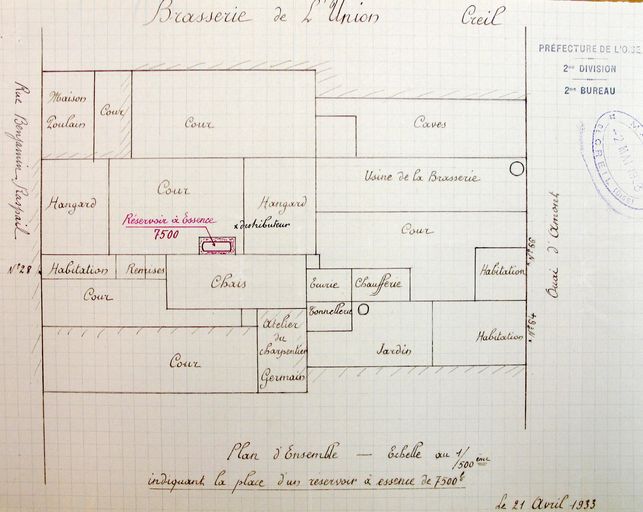 Brasserie de L'Union Creil
PRÉFECTURE DE L'OISE
2me DIVISION
2me BUREAU
Rue Benjamin Raspail
Maison
Poulain
Cour
Cour
Caves
Usine de la Brasserie
Hangard
Cour
Hangard
Cour
Réservoir à Essence
7500
x distributeur
Quai d'Amont
N° 28
Habitation
Remises
Chais
Cour
Ecurie
Chaufferie
Habitation
N° 66
Tonnellerie
Atelier
du
charpentier
Germain
Cour
Jardin
Habitation
N° 64
Plan d'Ensemble — Echelle au 1/500 ème
indiquant la place d'un reservoir à essence de 7500 l
Le 21 Avril 1933